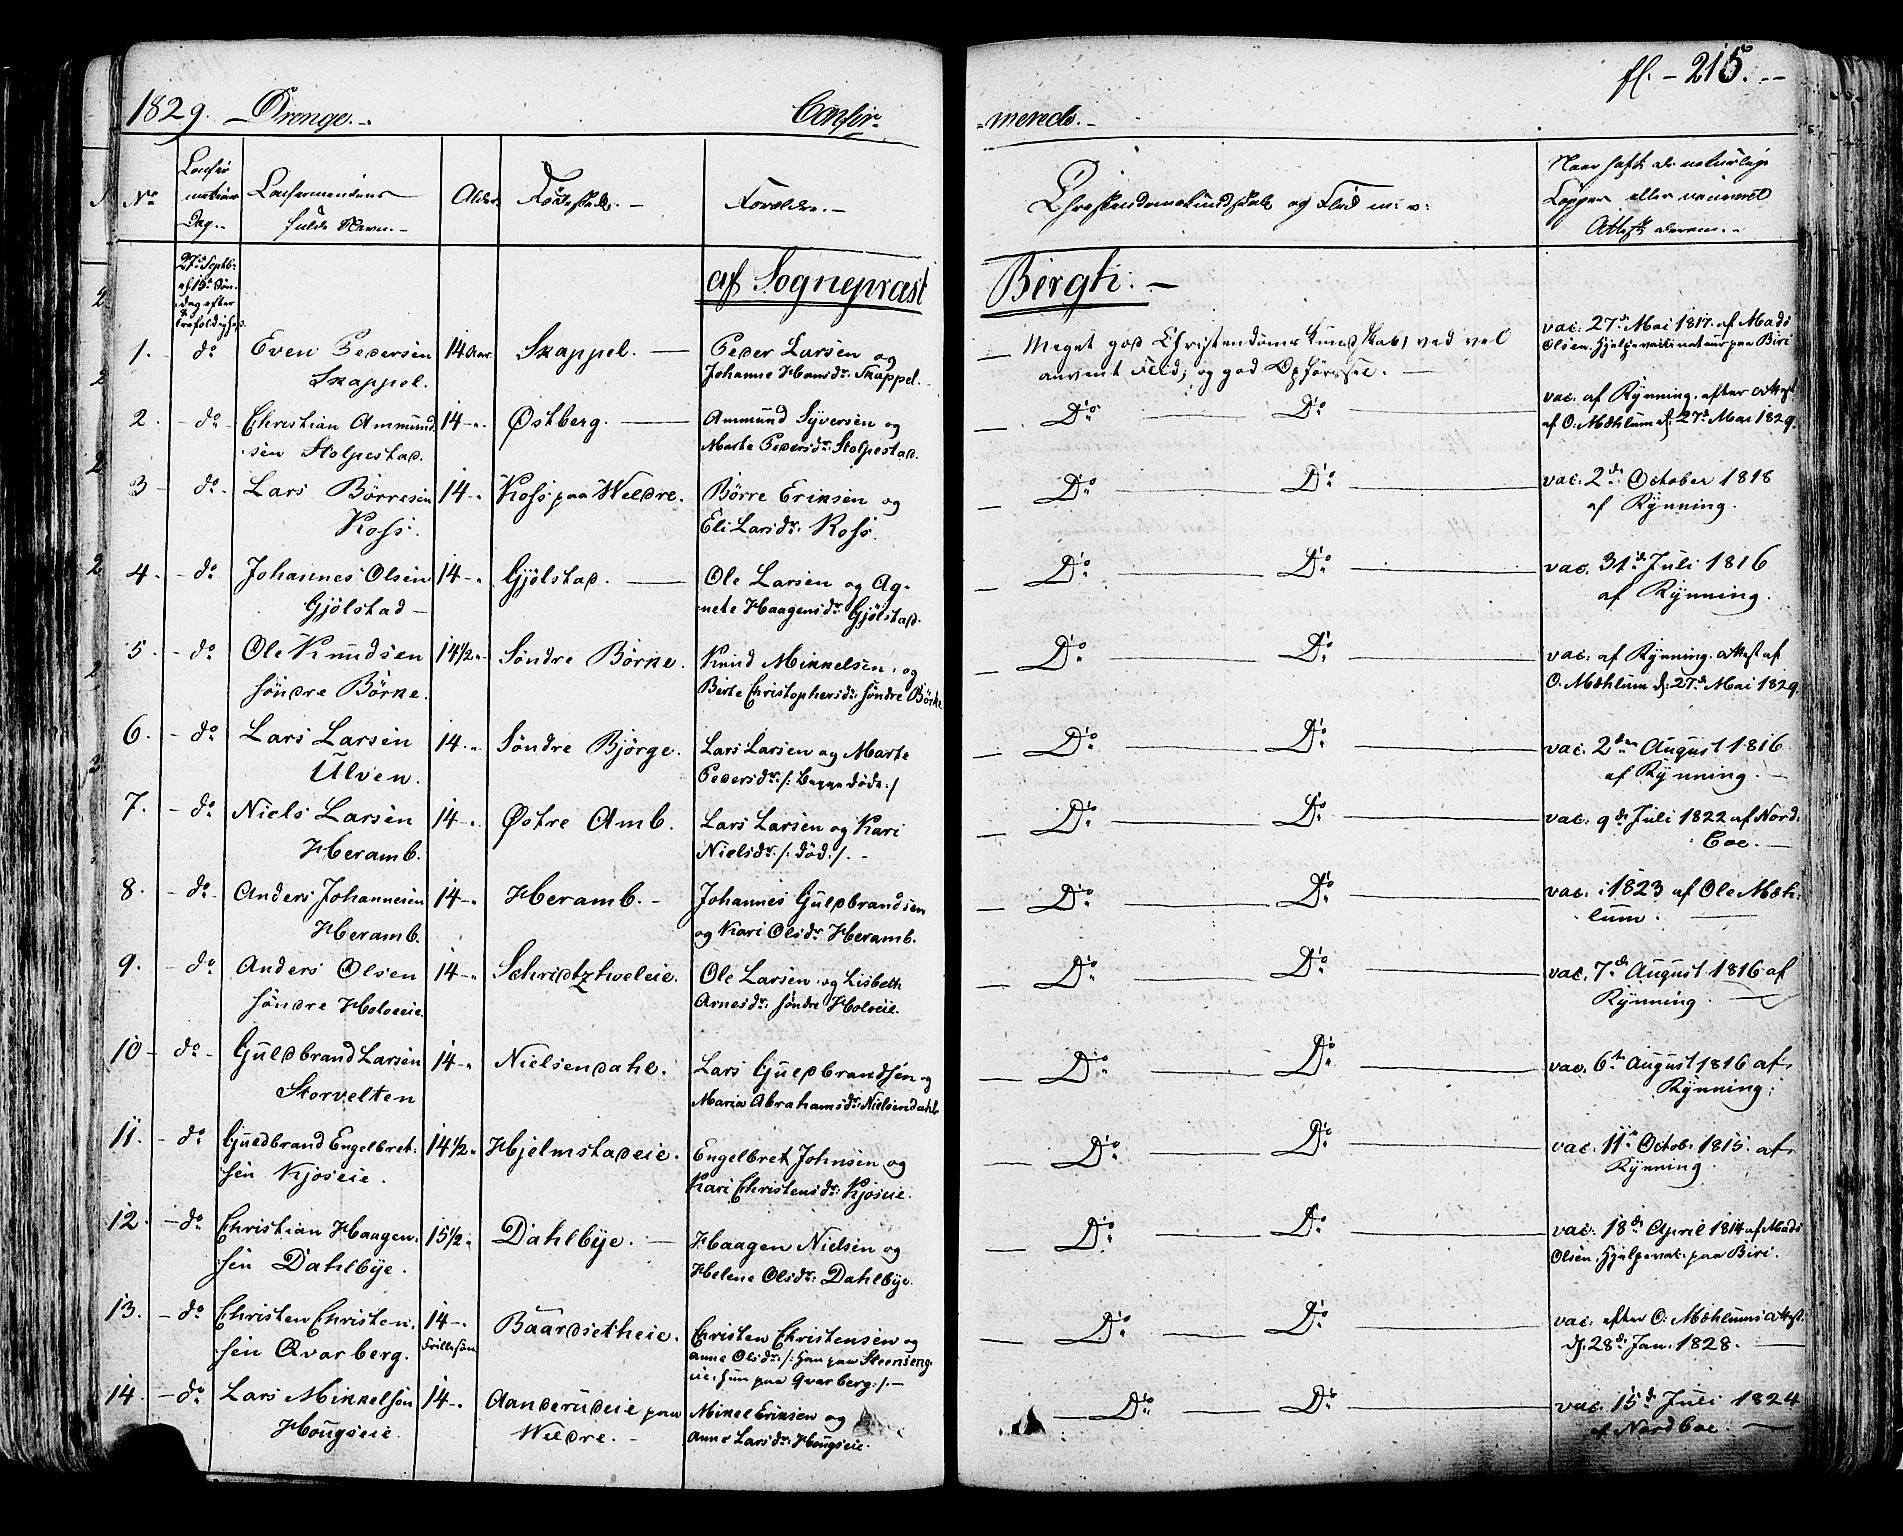 fl. - 215. -
1829. Drenge. - Confir- -merede. -
No Confirmations Dag. - Confirmandens fulde Navn. - Alder. Födested. - Forældre. - Christendomskundskab og Flid m: v: Naar hafte de naturlige Kopper eller vaccineret Attest derom. -
27de Septbr. 15de Søndag efter Trefoldighed.
af Sognepræst Bergh: -
1. do Even Pedersen Skappel. 14 Aar. Skappel. Peder Larsen og Johanne Hansdr: Skappel. Meget god Christendoms Kundskab, ved vel anvent Flid; og god Opførsel. vac. 27de Mai 1817. af Mads Olsen, Hjelpevaccinateur paa Biri
2. do Christian Ammundsen Stolpestad. 14 Østberg. Ammund Syversen og Marte Pedersdr: Stolpestad. Do Do vac. af Rynning, efter Attest af O. Mæhlum d: 27de Mai 1829.
3 do Lars Börresen Koss. 14 Koss paa Weldre. Börre Eriksen og Eli Larsdr: Koss. Do Do vac. 2de October 1818 af Rynning.
4. do Johannes Olsen Gjølstad 14 Gjølstad. Ole Larsen og Agnete Haagensdr: Gjølstad. Do Do vac. 31de Juli 1816 af Rynning.
5. do Ole Knudsen söndre Börke. 14 1/2 Söndre Börke. Knud Mikkelsen, og Berte Christophersdr: söndre Börke. Do Do vac. af Rynning. Attest af O. Mæhlum d: 27de Mai 1829.
6. do Lars Larsen Ulven. 14 Söndre Bjørge. Lars Larsen og Marte Pedersdr: /: begge döde :/ Do Do vac. 2den August 1816 af Rynning.
7. do Niels Larsen Heramb. 14 Østre Amb. Lars Larsen og Kari Nielsdr: /: död :/. Do Do vac. 9de Juli 1822 af Nordboe.
8. do Anders Johannesen Heramb. 14 Heramb. Johannes Guldbrandsen og Kari Olsdr: Heramb. Do Do vac. i 1823 af Ole Mæhlum.
9. do Anders Olsen söndre Holoeie. 14 Ole Larsen og Lisbeth Arnesdr: söndre Holoeie. Do Do vac. 7de August 1816 af Rynning.
10 do Guldbrand Larsen Storvelten 14 Nielsendahl. Lars Guldbrandsen og Maria Abrahamsdr: Nielsendahl. Do Do vac. 6te August 1816 af Rynning;
11. do Guldbrand Engelbretsen Kjoseie. 14 1/2 Hjelmstadeie. Engelbret Johnsen og Kari Christensdr: Kjoseie. Do Do vac. 11te Octob. 1815. af Rynning.
12. do Christian Haagensen Dahlbye. 15 1/2 Dahlbye. Haagen Nielsen og Helene Olsdr: Dahlbye. Do Do vac. 18de April 1814 af Mads Olsen, Hjelpevac. paa Biri.
13. do Christen Christensen Qvarberg. 14 Frillesön Baardsetheie. Christen Christensen og Anne Olsdr: /: han paa Steensengeie. hun paa Qvarberg :/. - Do Do vac. efter O. Mæhlums Attest. d: 28de Jan. 1828.
14. do Lars Mikkelsön Hougseie. 14 Aanderudeie paa Weldre. Mikel Eriksen og Anne Larsdr: Hougseie. Do Do vac. 15de Juli 1824 af Nordboe.